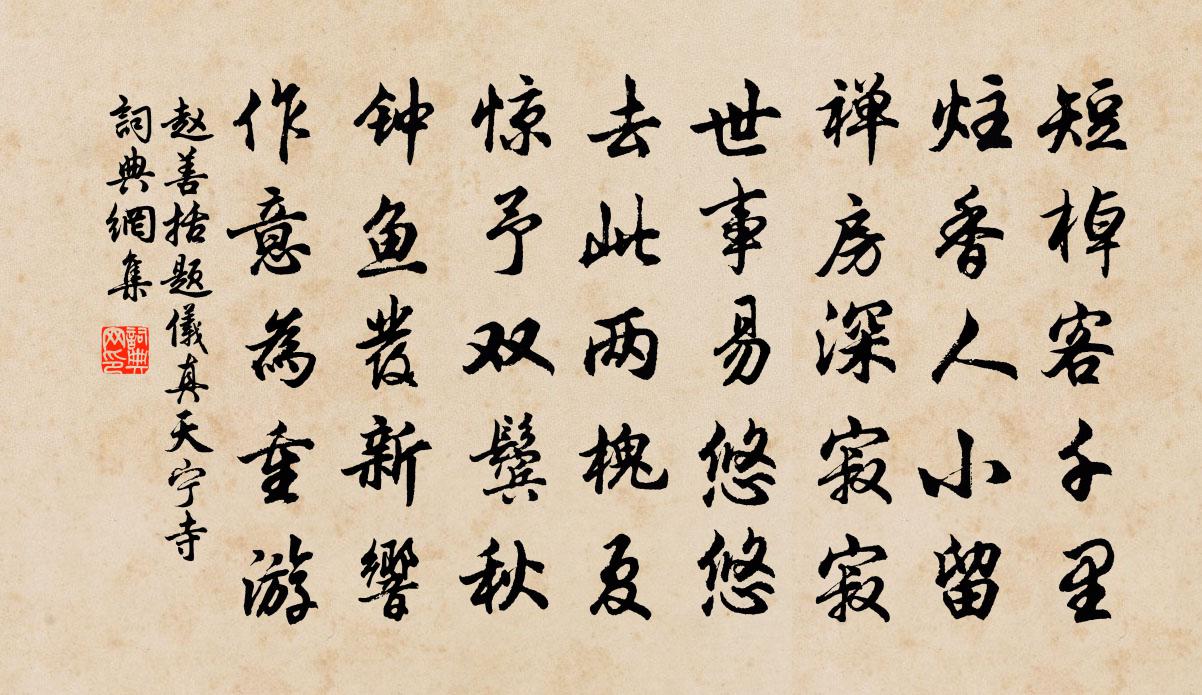 短棹客千里
炷香人小留
禅房深寂寂
世事易悠悠
去此两槐夏
惊予双鬓秋
钟鱼发新響
作意為重游
赵善括题儀真天宁寺
詞典網集
詞典網印